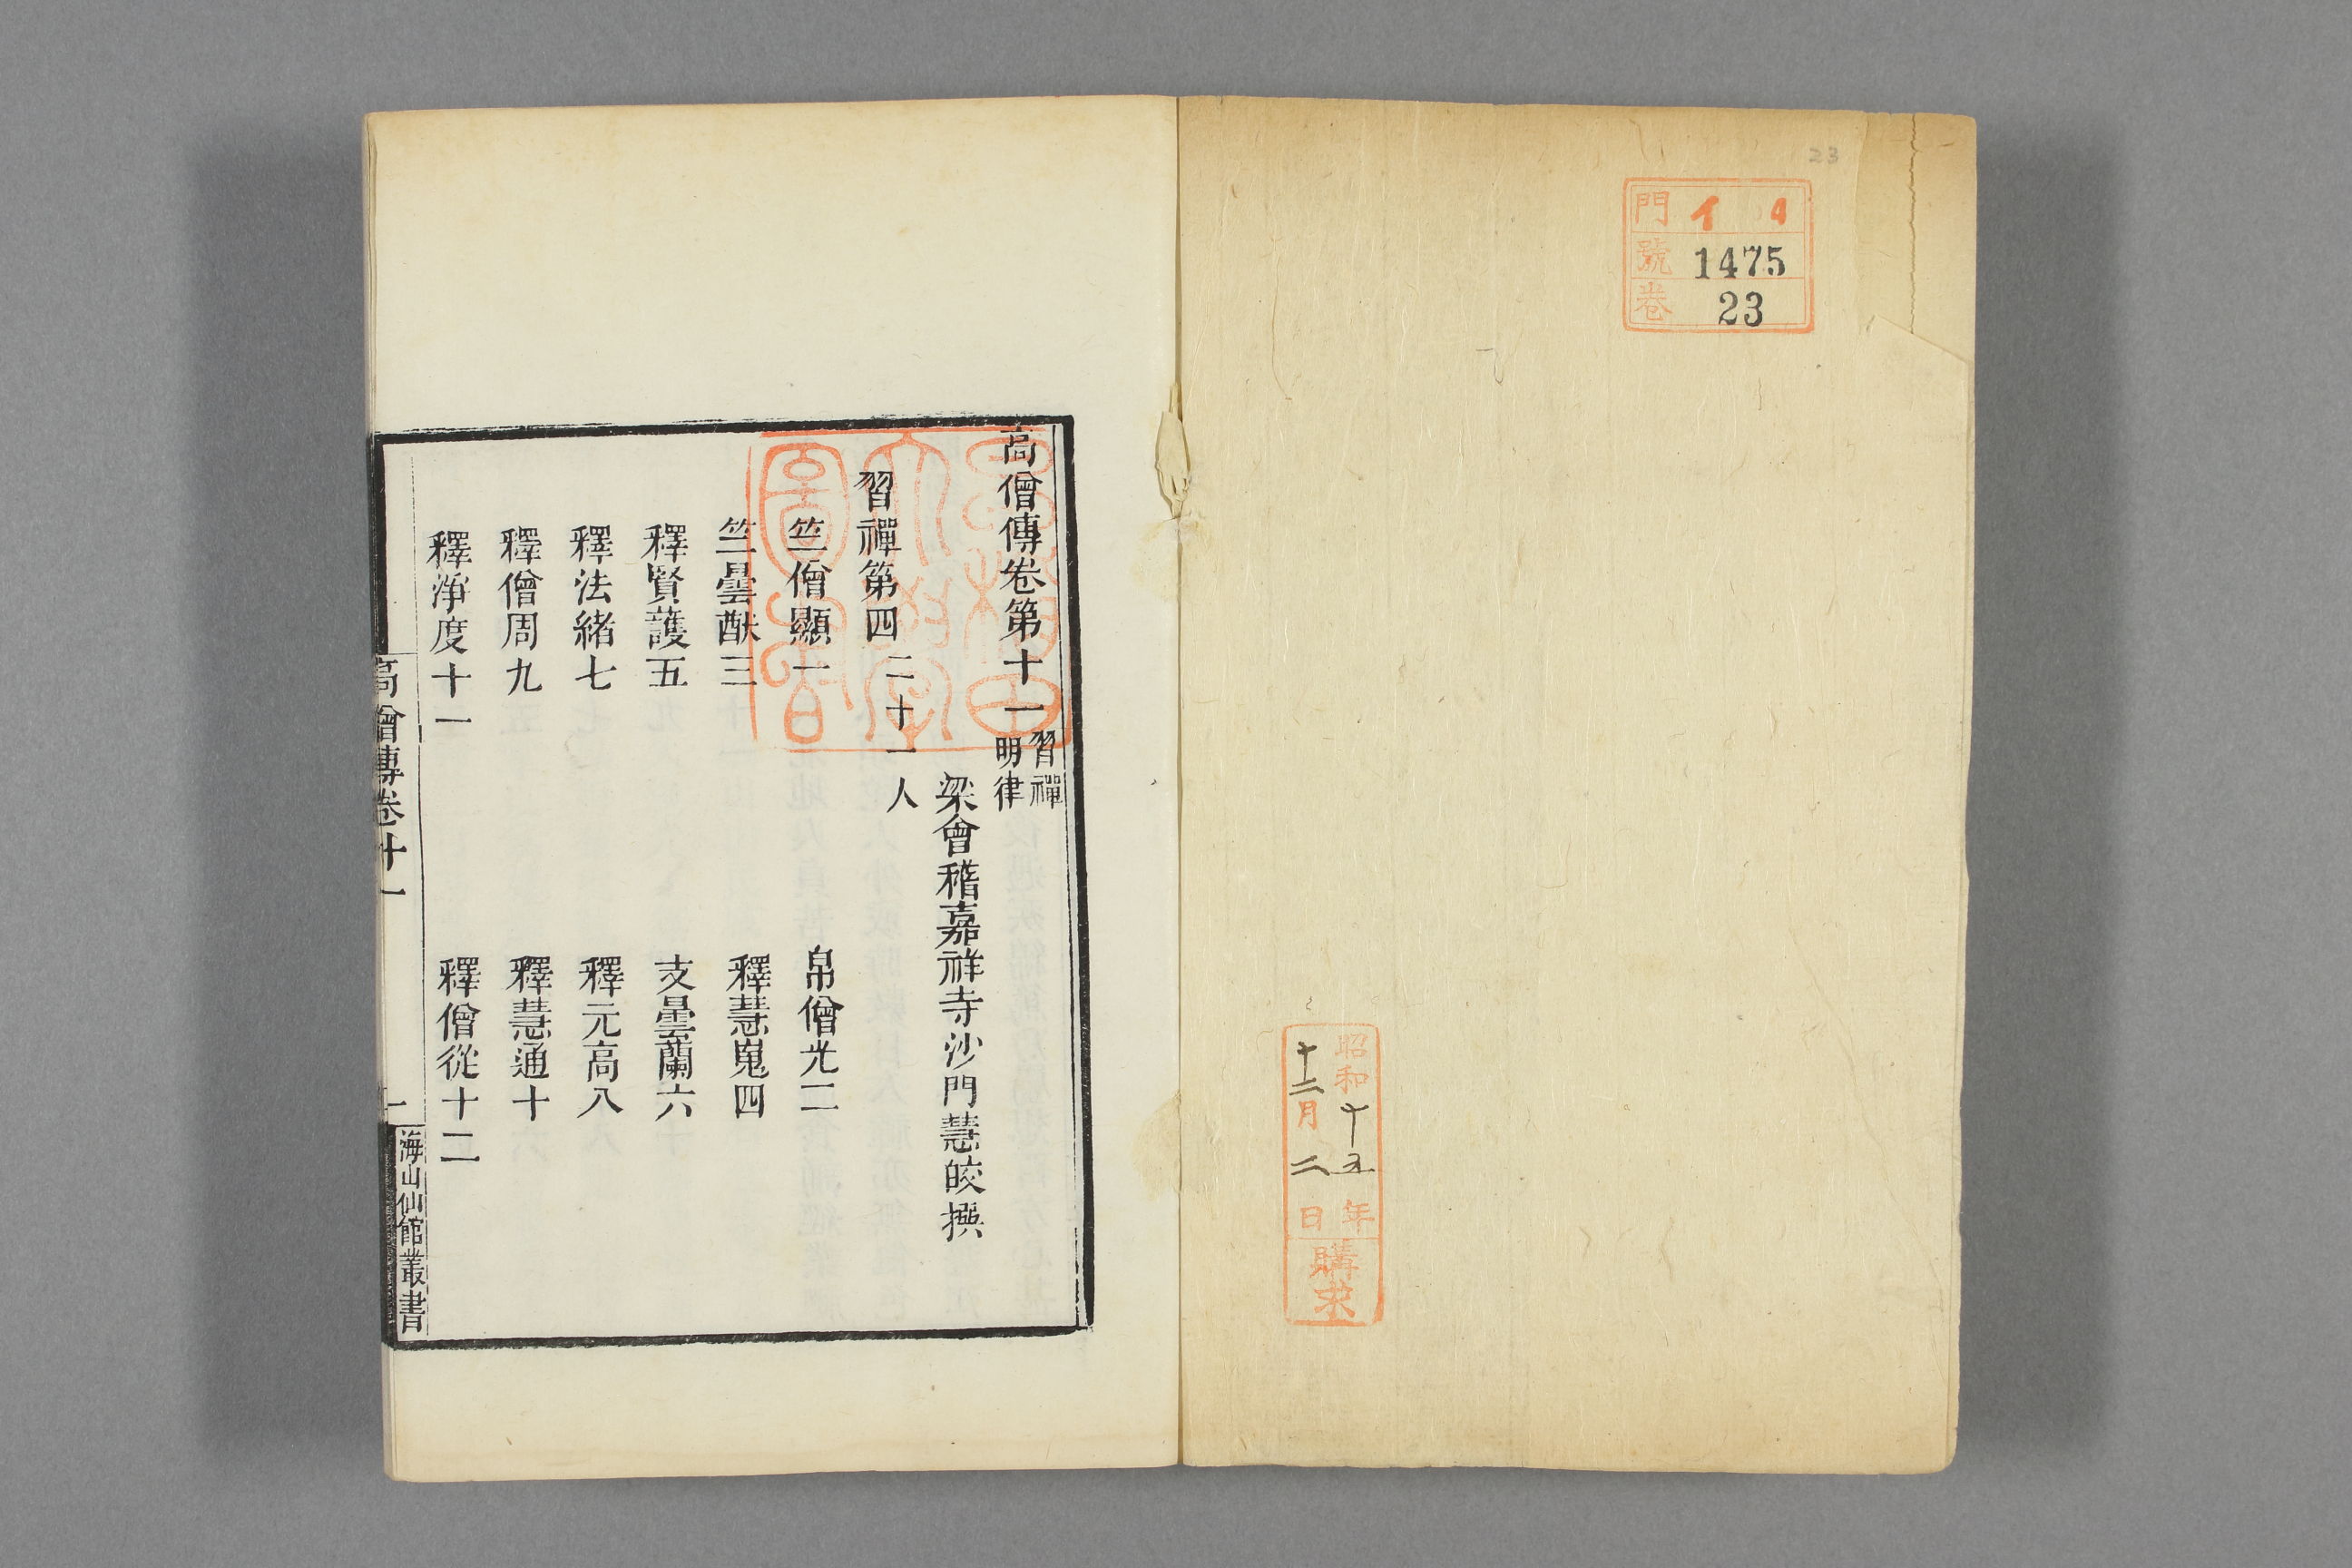 23
門 イ 4
號 1475
卷 23
昭和十五年
十二月二日
購求
高僧傳卷第十一 習禪
明律
梁會稽嘉祥寺沙門慧皎撰
習禪第四 二十一人
竺僧顯一 帛僧光二
竺曇猷三 釋慧嵬四
釋賢護五 支曇蘭六
釋法緒七 釋元高八
釋僧周九 釋慧通十
釋淨度十一 釋僧從十二
高僧傳卷十一 一 海山仙館叢書